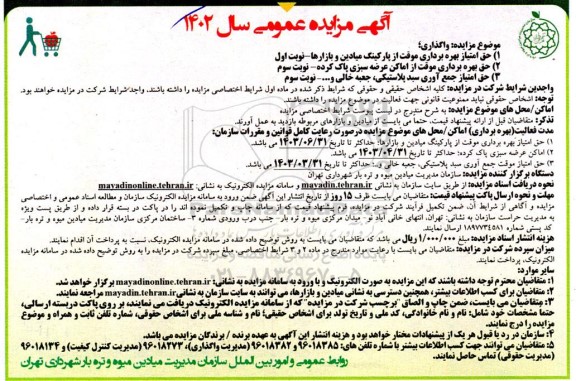 آگهی مزایده عمومی سال ۱۴۰۲
موضوع مزایده: واگذاری؛
۱) حق امتیاز بهره برداری موقت از پارکینگ میادین و بازارها-نوبت اول
۲) حق بهره برداری موقت از اماکن عرضه سبزی پاک کرده- نوبت سوم
۳) حق امتیاز جمع آوری سبد پلاستیکی، جعبه خالی و...- نوبت سوم
واجدین شرایط شرکت در مزایده: کلیه اشخاص حقیقی و حقوقی که شرایط ذکر شده در ماده اول شرایط اختصاصی مزایده را داشته باشند، واجدشرایط شرکت در مزایده خواهند بود.
توجه: اشخاص حقوقی نباید ممنوعیت قانونی جهت فعالیت در موضوع مزایده را داشته باشند.
اماکن/محل های موضوع مزایده به شرح مندرج در لیست پیوست شرایط اختصاصی مزایده می باشد.
تذکر: متقاضیان قبل از ارائه پیشنهاد قیمت، حتما می بایست از میادین و بازارهای مربوطه بازدید به عمل آورند.
مدت فعالیت(بهره برداری) اماکن/محل های موضوع مزایده درصورت رعایت کامل قوانین و مقررات سازمان:
۱) حق امتیاز بهره برداری موقت از پارکینگ میادین و بازارها: حداکثر تا تاریخ ۱۴۰۳/۰۶/۳۱ می باشد.
۲) اماکن عرضه سبزی پاک کرده: حداکثر تا تاریخ ۱۴۰۳/۰۴/۳۱ می باشد.
۳) حق امتیاز موقت جمع آوری سبد پلاستیکی، جعبه خالی و..: حداکثر تا تاریخ ۱۴۰۳/۰۳/۳۱ می باشد.
دستگاه برگزار کننده مزایده: سازمان مدیریت میادین میوه و تره بار شهرداری تهران
نحوه دریافت اسناد مزایده: از طریق سایت سازمان به نشانی mayadin.tehran.ir و سامانه مزایده الکترونیک به نشانی: mayadinonline.tehran.ir
مهلت و نحوه ارسال پاکت پیشنهاد قیمت: متقاضیان می بایست ظرف ۱۵ روز از تاریخ انتشار این آگهی ضمن ورود به سامانه مزایده الکترونیک سازمان و مطالعه اسناد عمومی و اختصاصی
مزایده و آگاهی از شرایط آن، ضمن تکمیل فرآیند شرکت در مزایده، فرم پیشنهاد قیمت که از سامانه چاپ و تکمیل نموده اند را در پاکت در بسته قرار داده و از طریق پست ویژه
به مدیریت حراست سازمان به نشانی: تهران، انتهای خانی آباد نو، میدان مرکزی میوه و تره بار- جنب درب ورودی شماره ۳- ساختمان مرکزی سازمان مدیریت میادین میوه و تره بار-
کد پستی شماره ۱۸۹۷۷۳۴۵۸۱ ارسال نمایند.
هزینه انتشار اسناد مزایده: مبلغ ۱/۰۰۰/۰۰۰ ریال می باشد که متقاضیان می بایست به روش توضیح داده شده در سامانه مزایده الکترونیک، نسبت به پرداخت آن اقدام نمایند.
میزان سپرده شرکت در مزایده: متقاضیان می بایست با رعایت موارد مندرج در ماده ۲ و ۳ شرایط اختصاصی، مبلغ سپرده شرکت در مزایده را به روش توضیح داده شده در سامانه مزایده
الکترونیک، پرداخت نمایند.
سایر موارد:
۱: متقاضیان محترم توجه داشته باشند که این مزایده به صورت الکترونیک و با ورود به سامانه مزایده به نشانی: mayadinonline.tehran.ir برگزار خواهد شد.
۲: متقاضیان برای کسب اطلاعات بیشتر، همچنین دسترسی به نشانی میادین و بازارها، می توانند به سایت سازمان به نشانی mayadin.tehran.ir مراجعه نمایند.
۳: متقاضیان می بایست، ضمن چاپ و الصاق "برچسب شرکت در مزایده" که از سامانه مزایده الکترونیک دریافت می نمایند، بر روی پاکت دربسته ارسالی،
حتما مشخصات خود شامل: نام و نام خانوادگی، کد ملی و تاریخ تولد برای اشخاص حقیقی؛ نام و شناسه ملی برای اشخاص حقوقی، شماره تلفن ثابت و همراه و موضوع
مزایده را درج نمایند.
۴: سازمان در رد یا قبول هر یک از پیشنهادات مختار خواهد بود و هزینه انتشار این آگهی به عهده برنده / برندگان مزایده می باشد.
۵: متقاضیان می توانند جهت کسب اطلاعات بیشتر با شماره تلفن های: ۹۶۰۱۸۳۸۵ و ۹۶۰۱۸۳۸۲ (مدیریت واگذاری)، ۹۶۰۱۸۲۷۳ (مدیریت کنترل کیفیت) و ۹۶۰۱۸۱۳۴
(مدیریت حقوقی) تماس حاصل نمایند.
روابط عمومی و امور بین الملل سازمان مدیریت میادین میوه و تره بار شهرداری تهران